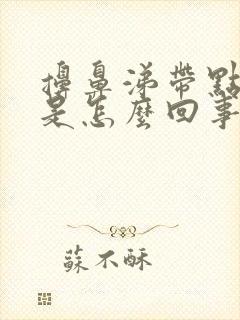 擤鼻涕帶點
是怎麼回事
蘇不酥